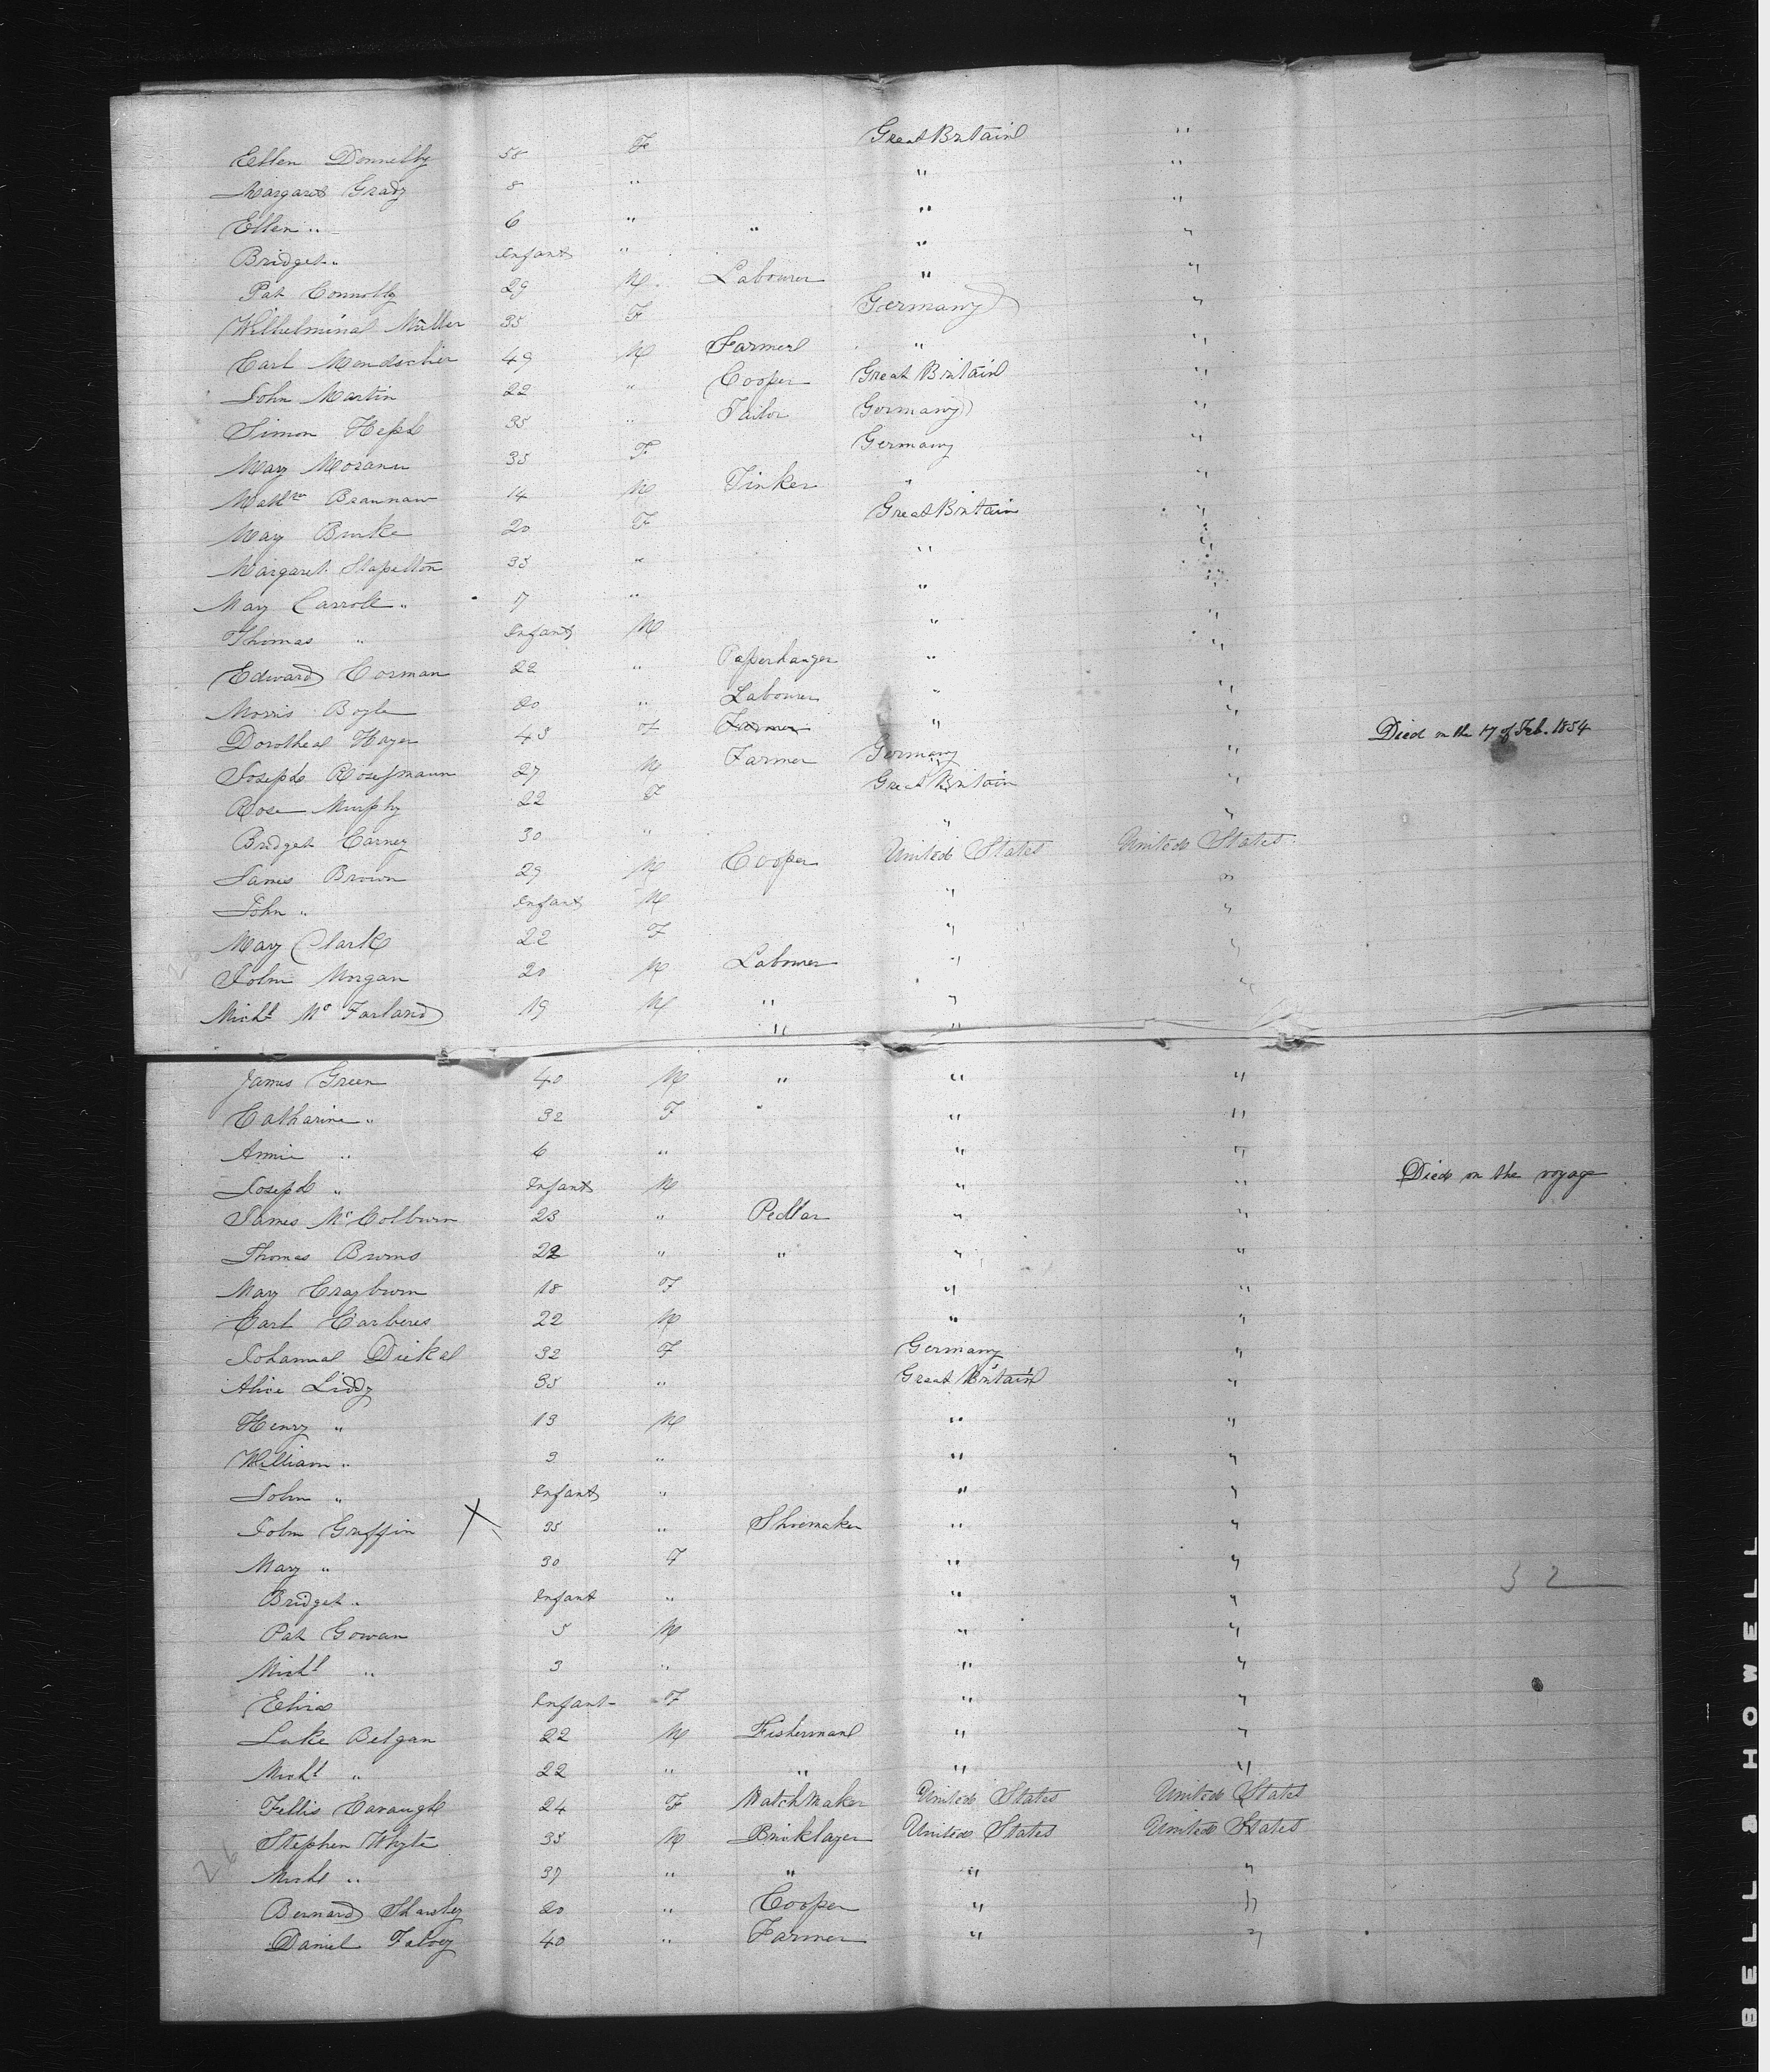 Ellen Donnelly 58 F Great Britain "
Margaret Grady 8 " " "
Ellen " 6 " " " "
Bridget " Infant " " "
Pat Connolly 29 M Labourer " "
Wilhelmina Müller 35 F Germany "
Carl 49 M Farmer " "
John Martin 22 " Cooper Great Britain "
Simon 35 " Tailor Germany "
Mary 35 F Germany "
14 M Tinker " "
Mary Burke 20 F Great Britain "
Margaret Stapelton 35 " " "
Mary Carroll " 17 " " "
Thomas " Infant M " "
Edward Corman 22 " Paperhanger " "
Morris Bogle 20 " Labourer " "
Dorothea Hayer 45 Farmer " " Died on the 17 of Feb. 1854
Joseph 27 M Farmer Germany "
Rose Murphy 22 F Great Britain "
Bridget Carney 30 " " "
James Brown 29 M Cooper United States United States
John " Infant M " "
Mary Clark 22 F " "
John Morgan 20 M Labourer " "
Michl Mc Farland 19 M " " "
" "
James Green 40 M " " "
Catharine " 32 F " " "
Annie " 6 " " "
Joseph " Infant M " " Died on the voyage
James Mc Colburn 23 " Pedlar " "
Thomas Burns 22 " " " "
Mary Crayburn 18 F " "
Carl Carberes 22 M " "
Johanna Diekel 32 F Germany "
Alice Liddy 35 " Great Britain "
Henry " 13 M " "
William " 3 " " "
John " Infant " " "
John Griffin X 35 " Shoemaker " "
Mary " 30 F " "
Bridget " Infant " " "
52
Pat Gowan 5 M " "
Michl " 3 " " "
Eliza Infant F " "
Luke Belgan 22 M Fisherman " "
Michl " 22 " " " "
Fellis Cavaugh 24 F Matchmaker United States United States
Stephen Whyte 35 M Bricklayer United States United States
26
Michl " 37 " " " "
Bernard 20 " Cooper " "
Daniel 40 " Farmer " "
BELL & HOWELL